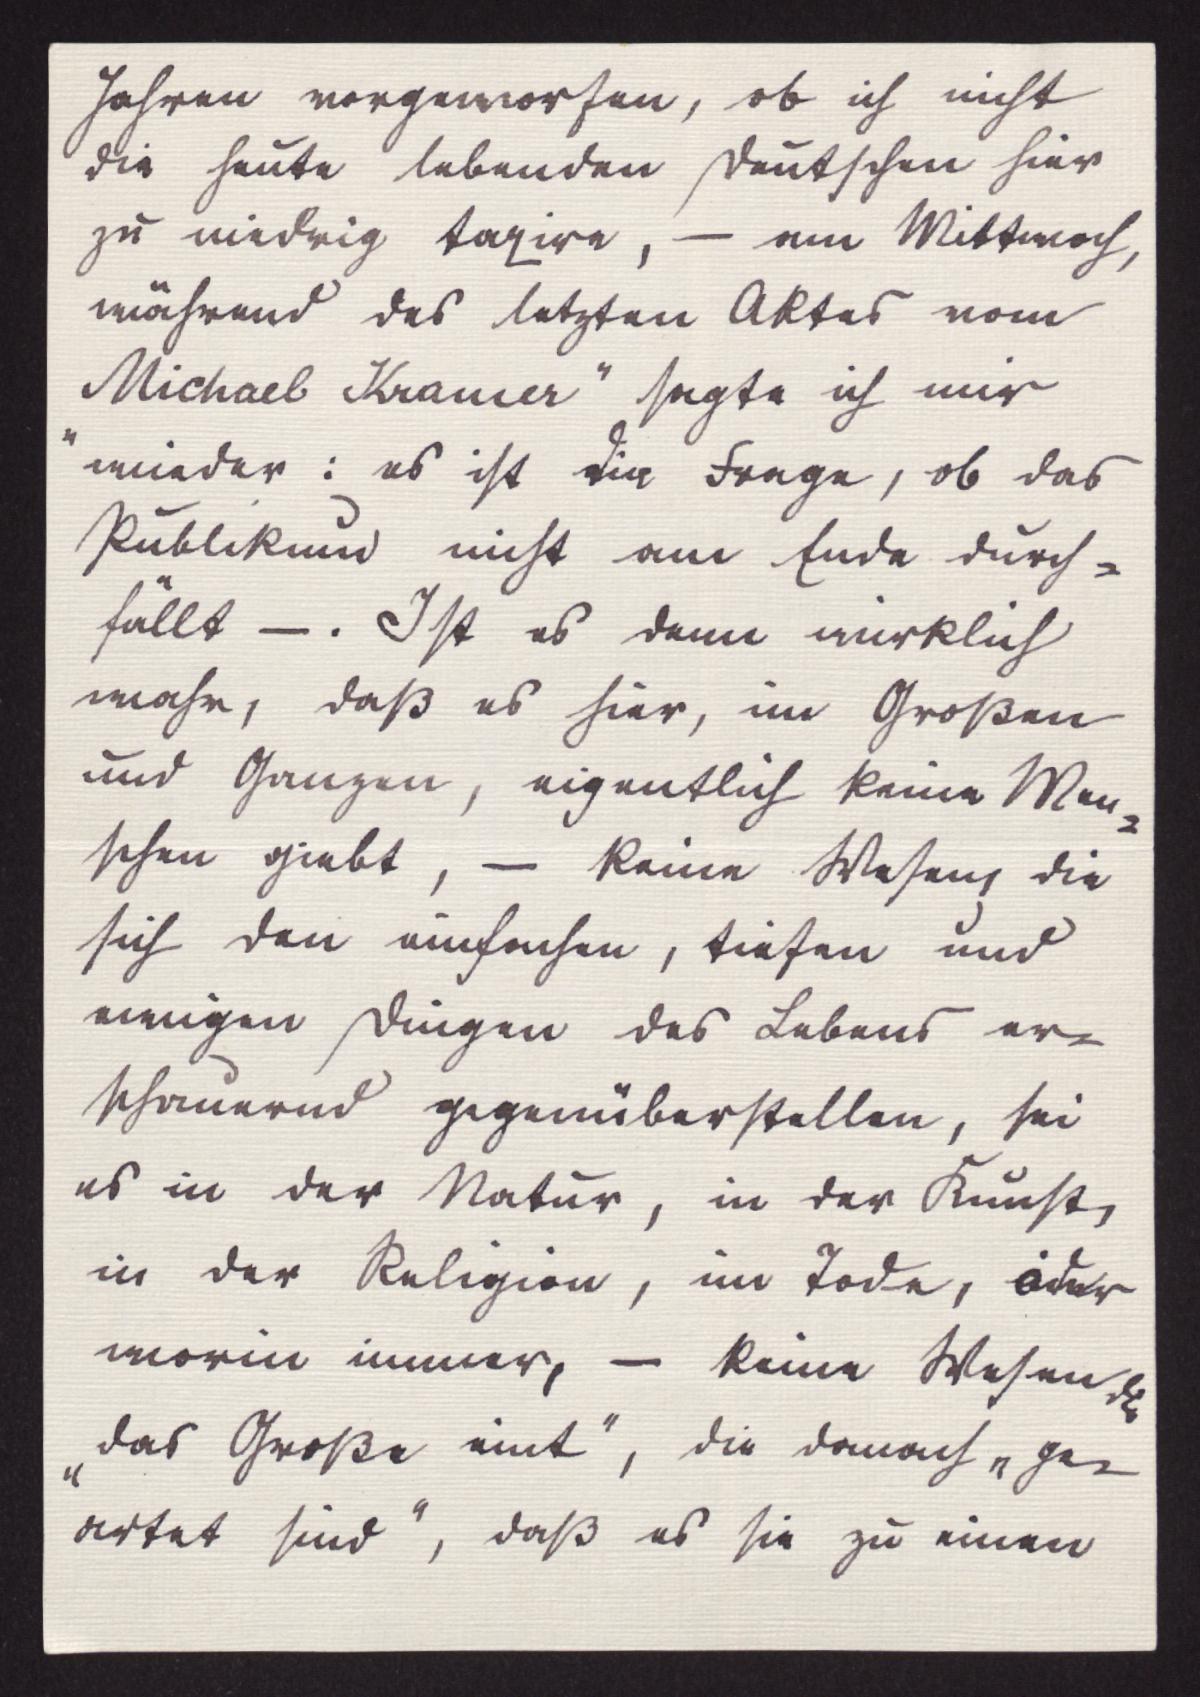 Jahren vorgeworfen, ob ich nicht
die heute lebenden Deutschen hier
zu niedrig taxire, — am Mittwoch,
während des letzten Aktes vom
„Michael Kramer" sagte ich mir
wieder: es ist die Frage, ob das
Publikum nicht am Ende durch-
fällt —. Ist es denn wirklich
wahr, daß es hier, im Großen
und Ganzen, eigentlich keine Men-
schen giebt, — keine Wesen, die
sich den einfachen, tiefen und
ewigen Dingen des Lebens er-
schauernd gegenüberstellen, sei
es in der Natur, in der Kunst,
in der Religion, im Tode, oder
worin immer, — keine Wesen die
„das Große eint", die danach „ge-
artet sind", daß es sie zu einen